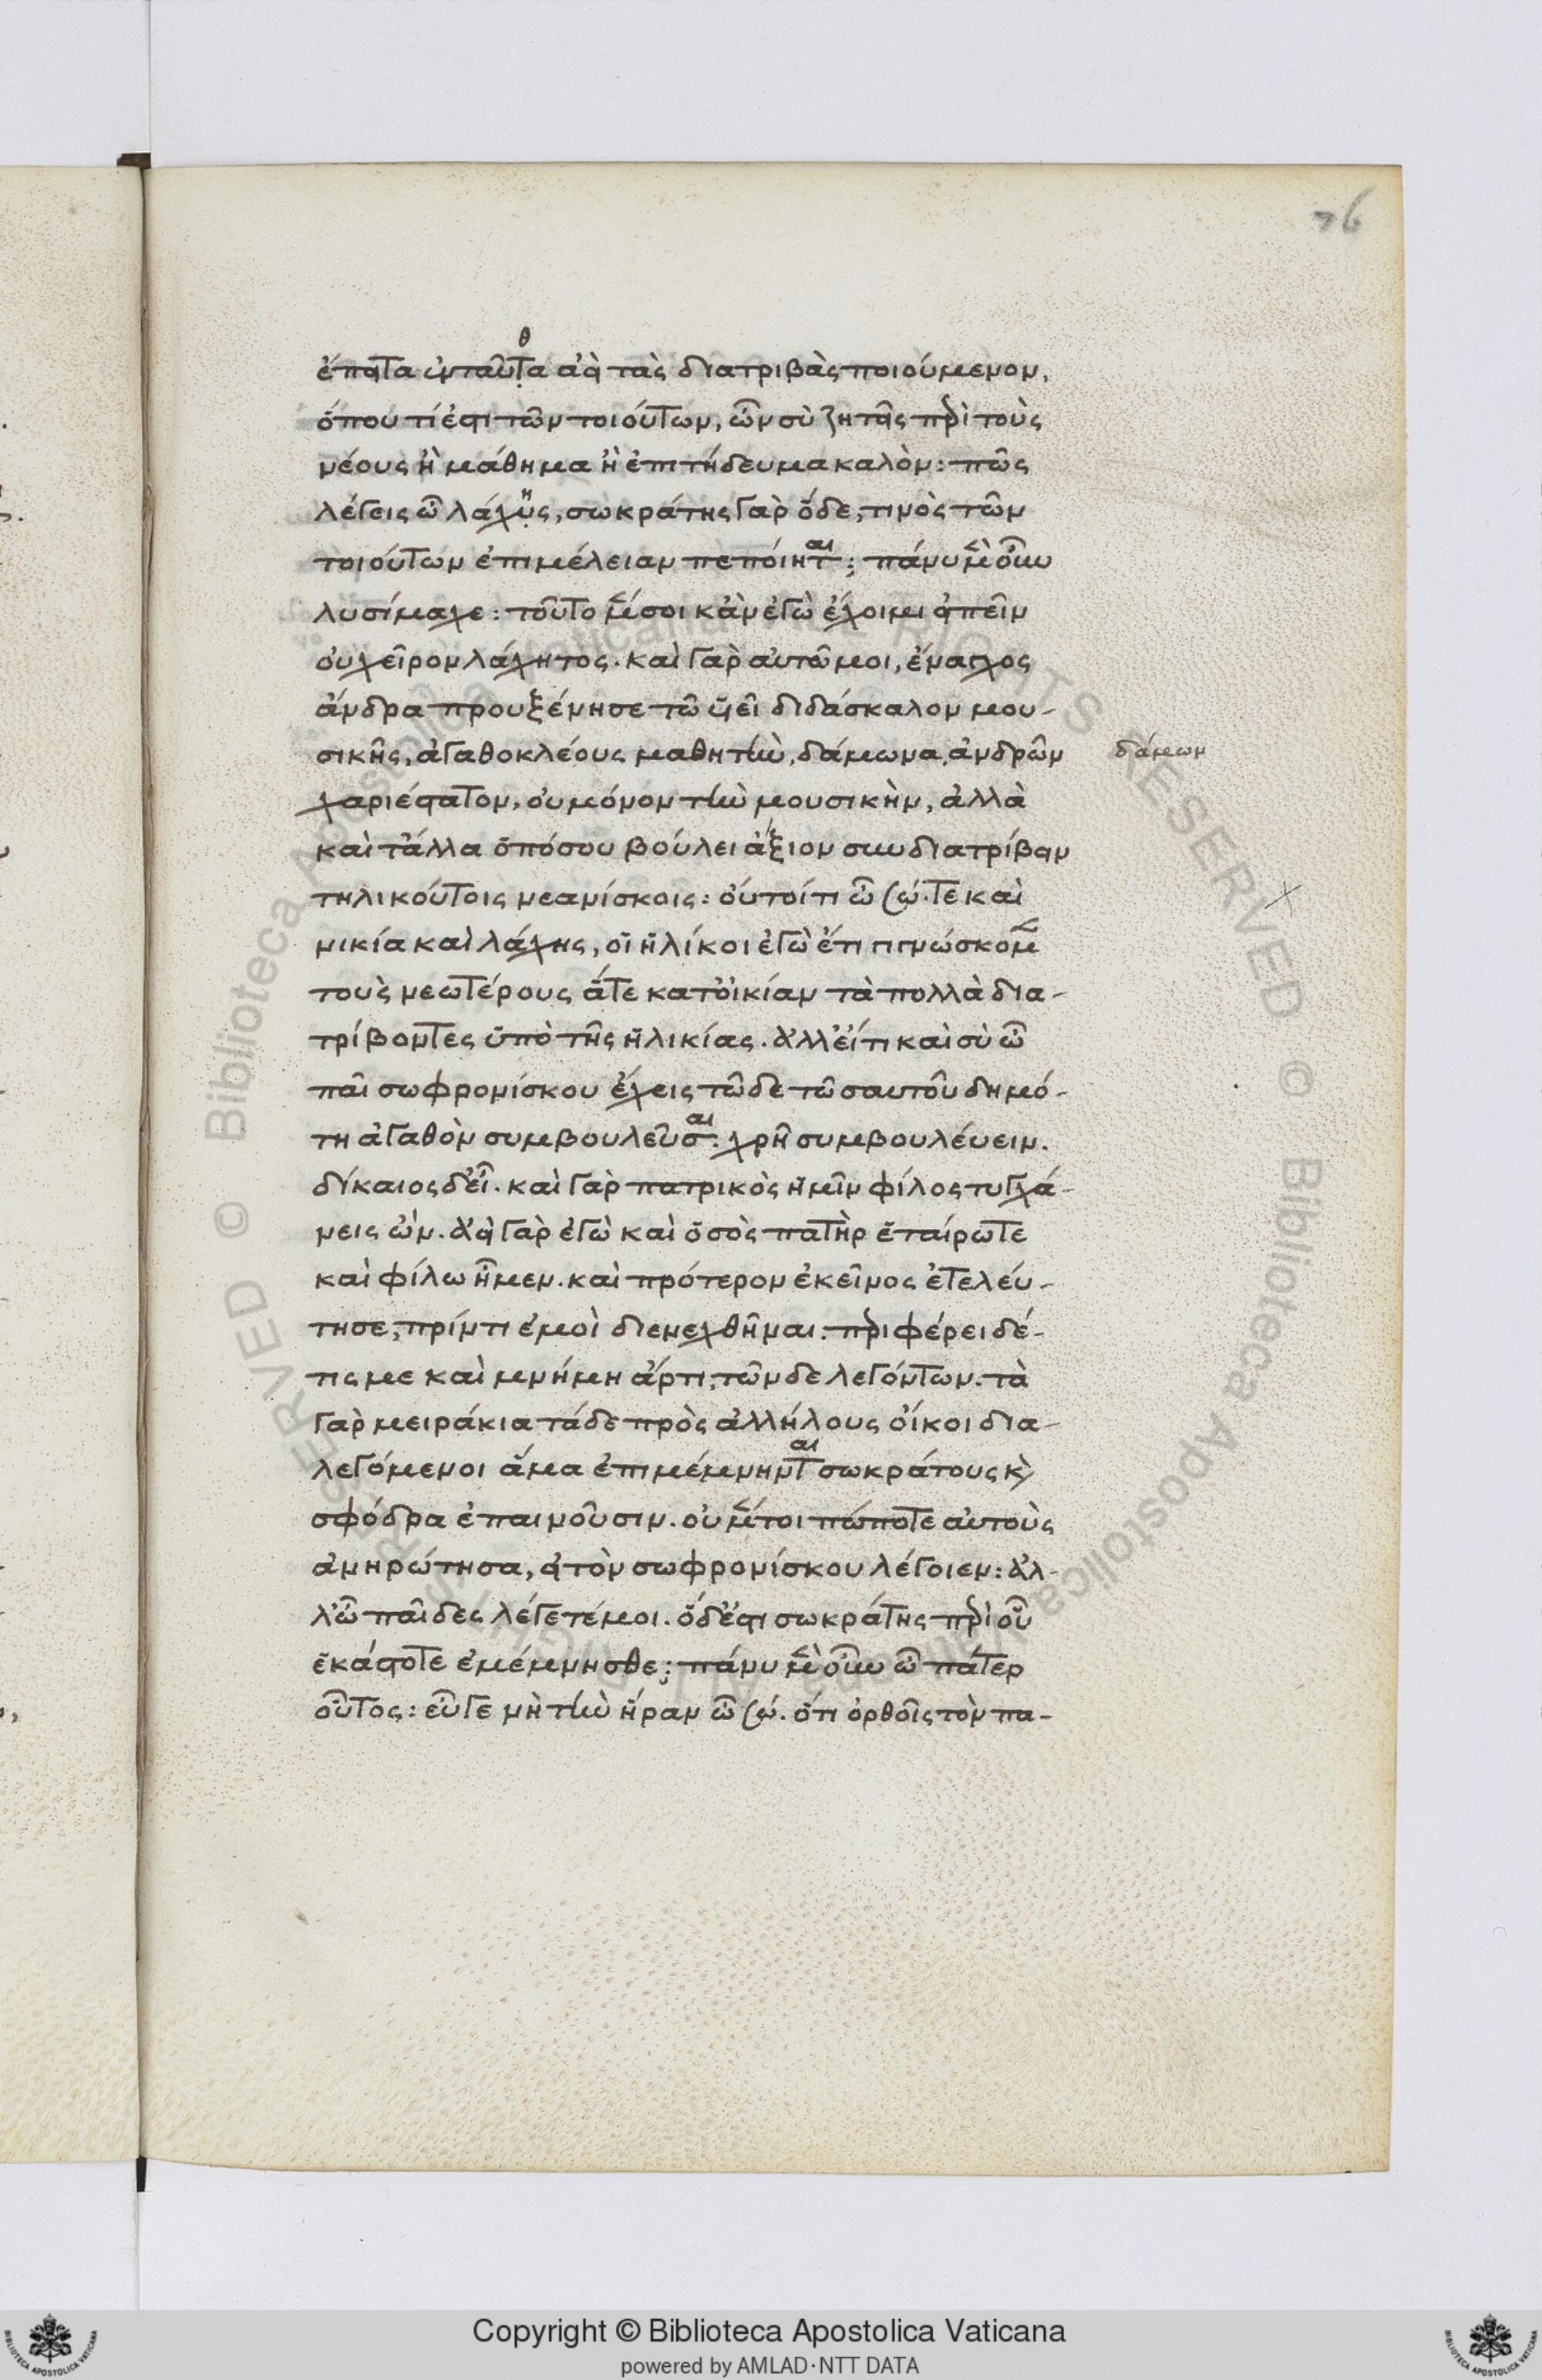 76
ἔπειτα ἐνταῦτα ἀεὶ τὰς διατριβὰς ποιούμενον,
ὅπου τί ἐστι τῶν τοιούτων, ὧν σὺ ζητεῖς περὶ τοὺς
νέους ἢ μάθημα ἢ ἐπιτήδευμα καλόν: πῶς
λέγεις ὦ λάχης, σωκράτης γὰρ ὅδε, τινὸς τῶν
τοιούτων ἐπιμέλειαν πεποίηται; πάνυ μὲν οὖν
λυσίμαχε: τοῦτο μέν σοι κἂν ἐγὼ ἔχοιμι εἰπεῖν
οὐ χεῖρον λάχητος. καὶ γὰρ αὐτῶ μοι, ἔναγχος
ἄνδρα προυξένησε τῶ ὑεῖ διδάσκαλον μου-
σικῆς, ἀγαθοκλέους μαθητὴν, δάμωνα, ἀνδρῶν
δάμων
χαριέστατον, οὐ μόνον τὴν μουσικὴν, ἀλλὰ
καὶ τἄλλα ὁπόσου βούλει ἄξιον συνδιατρίβειν
τηλικούτοις νεανίσκοις: οὔτοί τι ὦ σώ. τε καὶ
νικία καὶ λάχης, οἱ ἡλίκοι ἐγὼ ἔτι γιγνώσκομεν
τοὺς νεωτέρους ἅτε κατ' οἰκίαν τὰ πολλὰ δια-
τρίβοντες ὑπὸ τῆς ἡλικίας. ἀλλ' εἴ τι καὶ σὺ ὦ
παῖ σωφρονίσκου ἔχεις τῶδε τῶ σαυτοῦ δημό-
τη ἀγαθὸν συμβουλεῦσαι. χρῆ συμβουλεύειν.
δίκαιος δ' εἶ. καὶ γὰρ πατρικὸς ἡμῖν φίλος τυγχά-
νεις ὤν. ἀεὶ γὰρ ἐγὼ καὶ ὁ σὸς πατὴρ ἑταίρω τε
καὶ φίλω ἦμεν. καὶ πρότερον ἐκεῖνος ἐτελεύ-
τησε, πρίν τι ἐμοὶ διενεχθῆναι. περιφέρει δέ-
τις με καὶ μνήμη ἄρτι, τῶνδε λεγόντων. τὰ
γὰρ μειράκια τάδε πρὸς ἀλλήλους οἴκοι δια-
λεγόμενοι ἅμα ἐπιμέμνηνται σωκράτους καὶ
σφόδρα ἐπαινοῦσιν. οὐ μέντοι πώποτε αὐτοὺς
ἀνηρώτησα, εἰ τὸν σωφρονίσκου λέγοιεν: ἀλ-
λ' ὦ παῖδες λέγετέ μοι. ὅδ' ἔστι σωκράτης περὶ οὗ
ἑκάστοτε ἐμέμνησθε; πάνυ μὲν οὖν ὦ πάτερ
οὗτος: εὖ γε νὴ τὴν ἥραν ὦ σώ. ὅτι ὀρθοῖς τὸν πα-
Copyright © Biblioteca Apostolica Vaticana
powered by AMLAD·NTT DATA